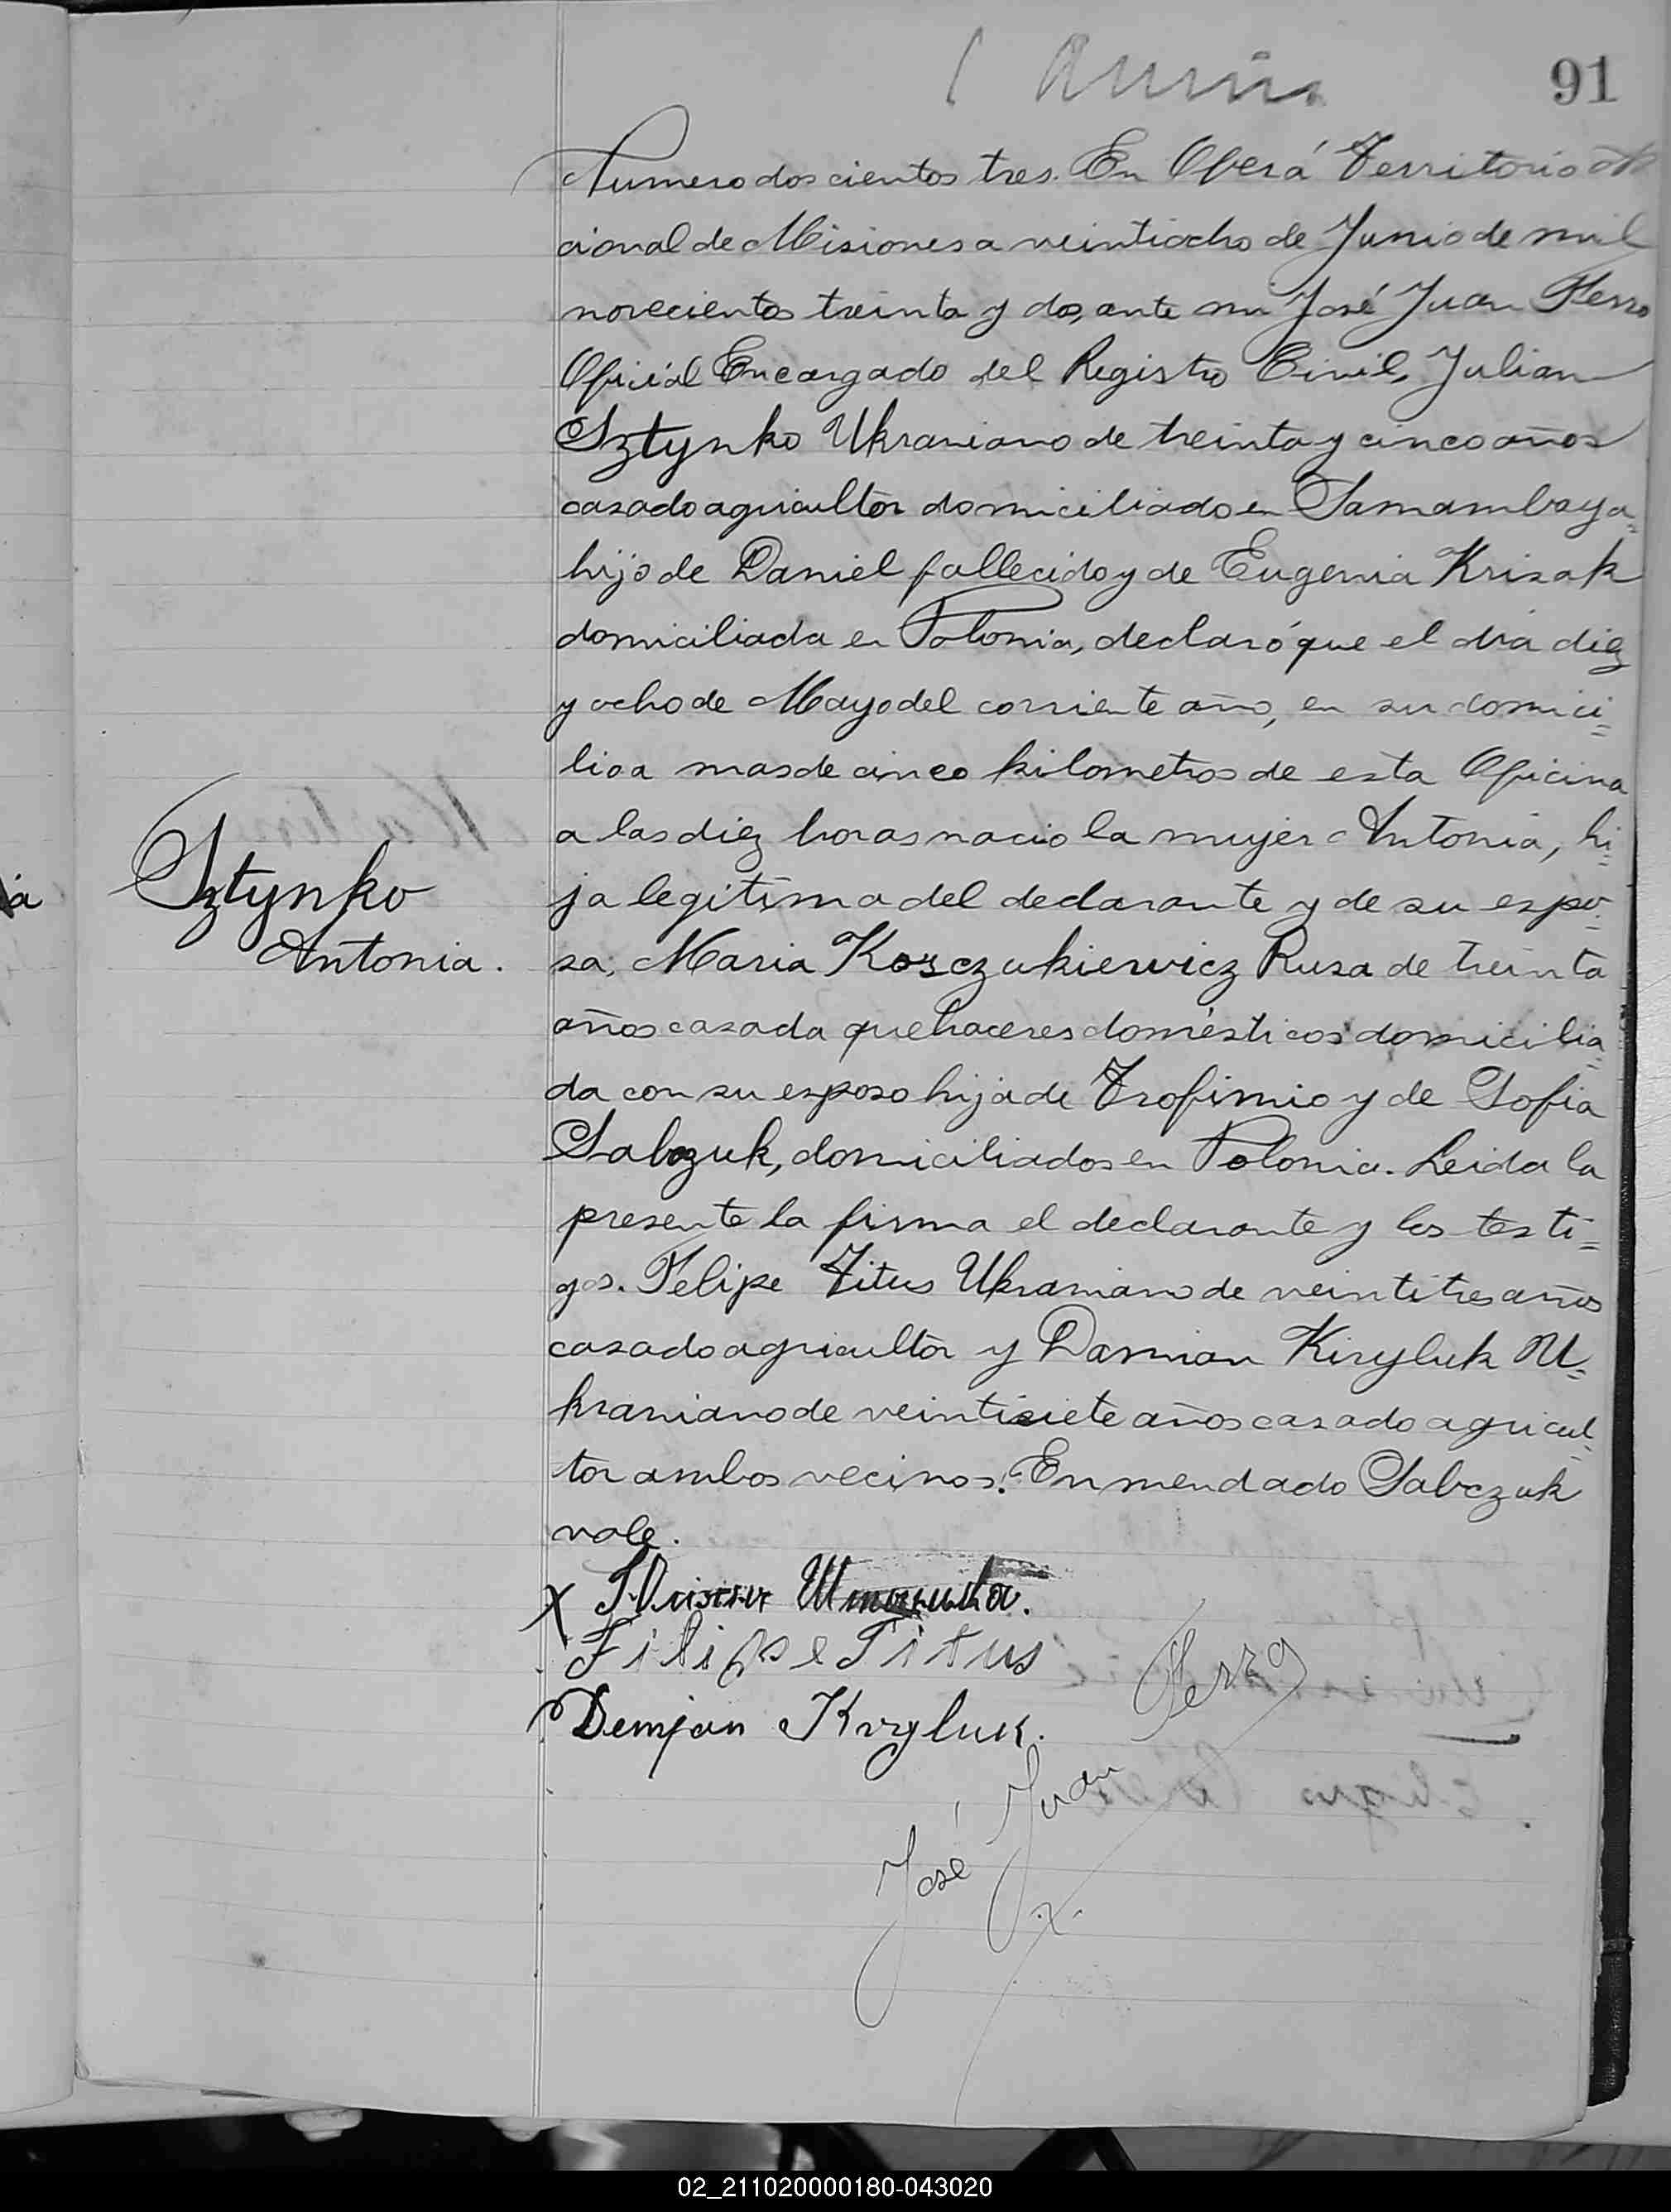 91
Numero dos cientos tres. En Oberá Territorio Na
cional de Misiones a veintiocho de Junio de mil
novecientos treinta y dos, ante mi José Juan Ferro
Oficial Encargado del Registro Civil, Julian
Sztynko Ukraniano de treinta y cinco años
casado agricultor domiciliado en Samambaya=
hijo de Daniel fallecido y de Eugenia Krisak
domiciliada en Polonia, declaró que el dia diez
y ocho de Mayo del corriente año, en su domici=
lio a mas de cinco kilometros de esta Oficina
a las diez horas nacio la mujer Antonia, hi=
ja legitima del declarante y de su espo=
Sztynko
Antonia.
sa, Maria Koszczukiewicz Rusa de treinta
años casada quehaceres domésticos domicilia=
da con su esposo hija de Trofimio y de Sofia
Sabczuk, domiciliados en Polonia. Leida la
presente la firma el declarante y los testi=
gos. Felipe Titus Ukraniano de veintitres años
casado agricultor y Damian Kiryluk U=
kraniano de veintisiete años casado agricul=
tor ambos vecinos. Enmendado Sabczuk
vale.
x
Filipe Titus
Demjan Kryluk.
José Juan Ferro
02_211020000180-043020